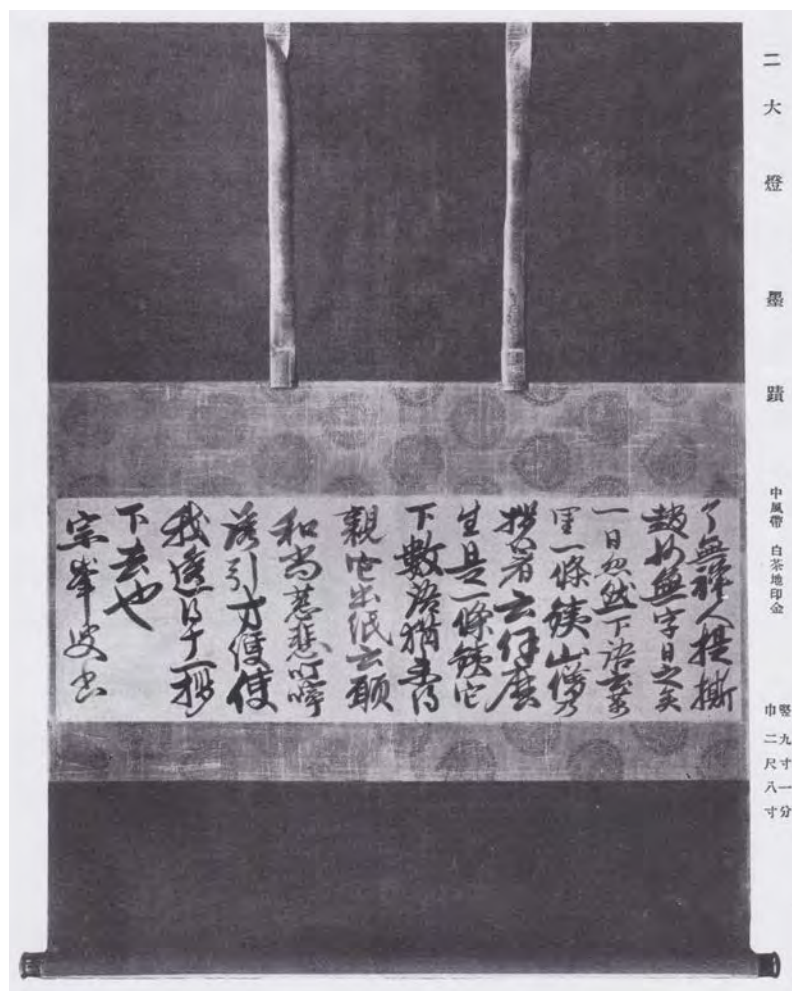 二大燈墨蹟
中風帶 白茶地印金
竪九寸一分
巾二尺八寸
了無禅人提撕
趙州無字日久矣
一日忽然下語云万
里一條鐵山僧乃
拶著云作麼
生是一條鐵它
下數語猶未得
親它出紙云願
和尚慈悲叮嚀
誘引方便使
我透得一拶
下去也
宗峯叟書